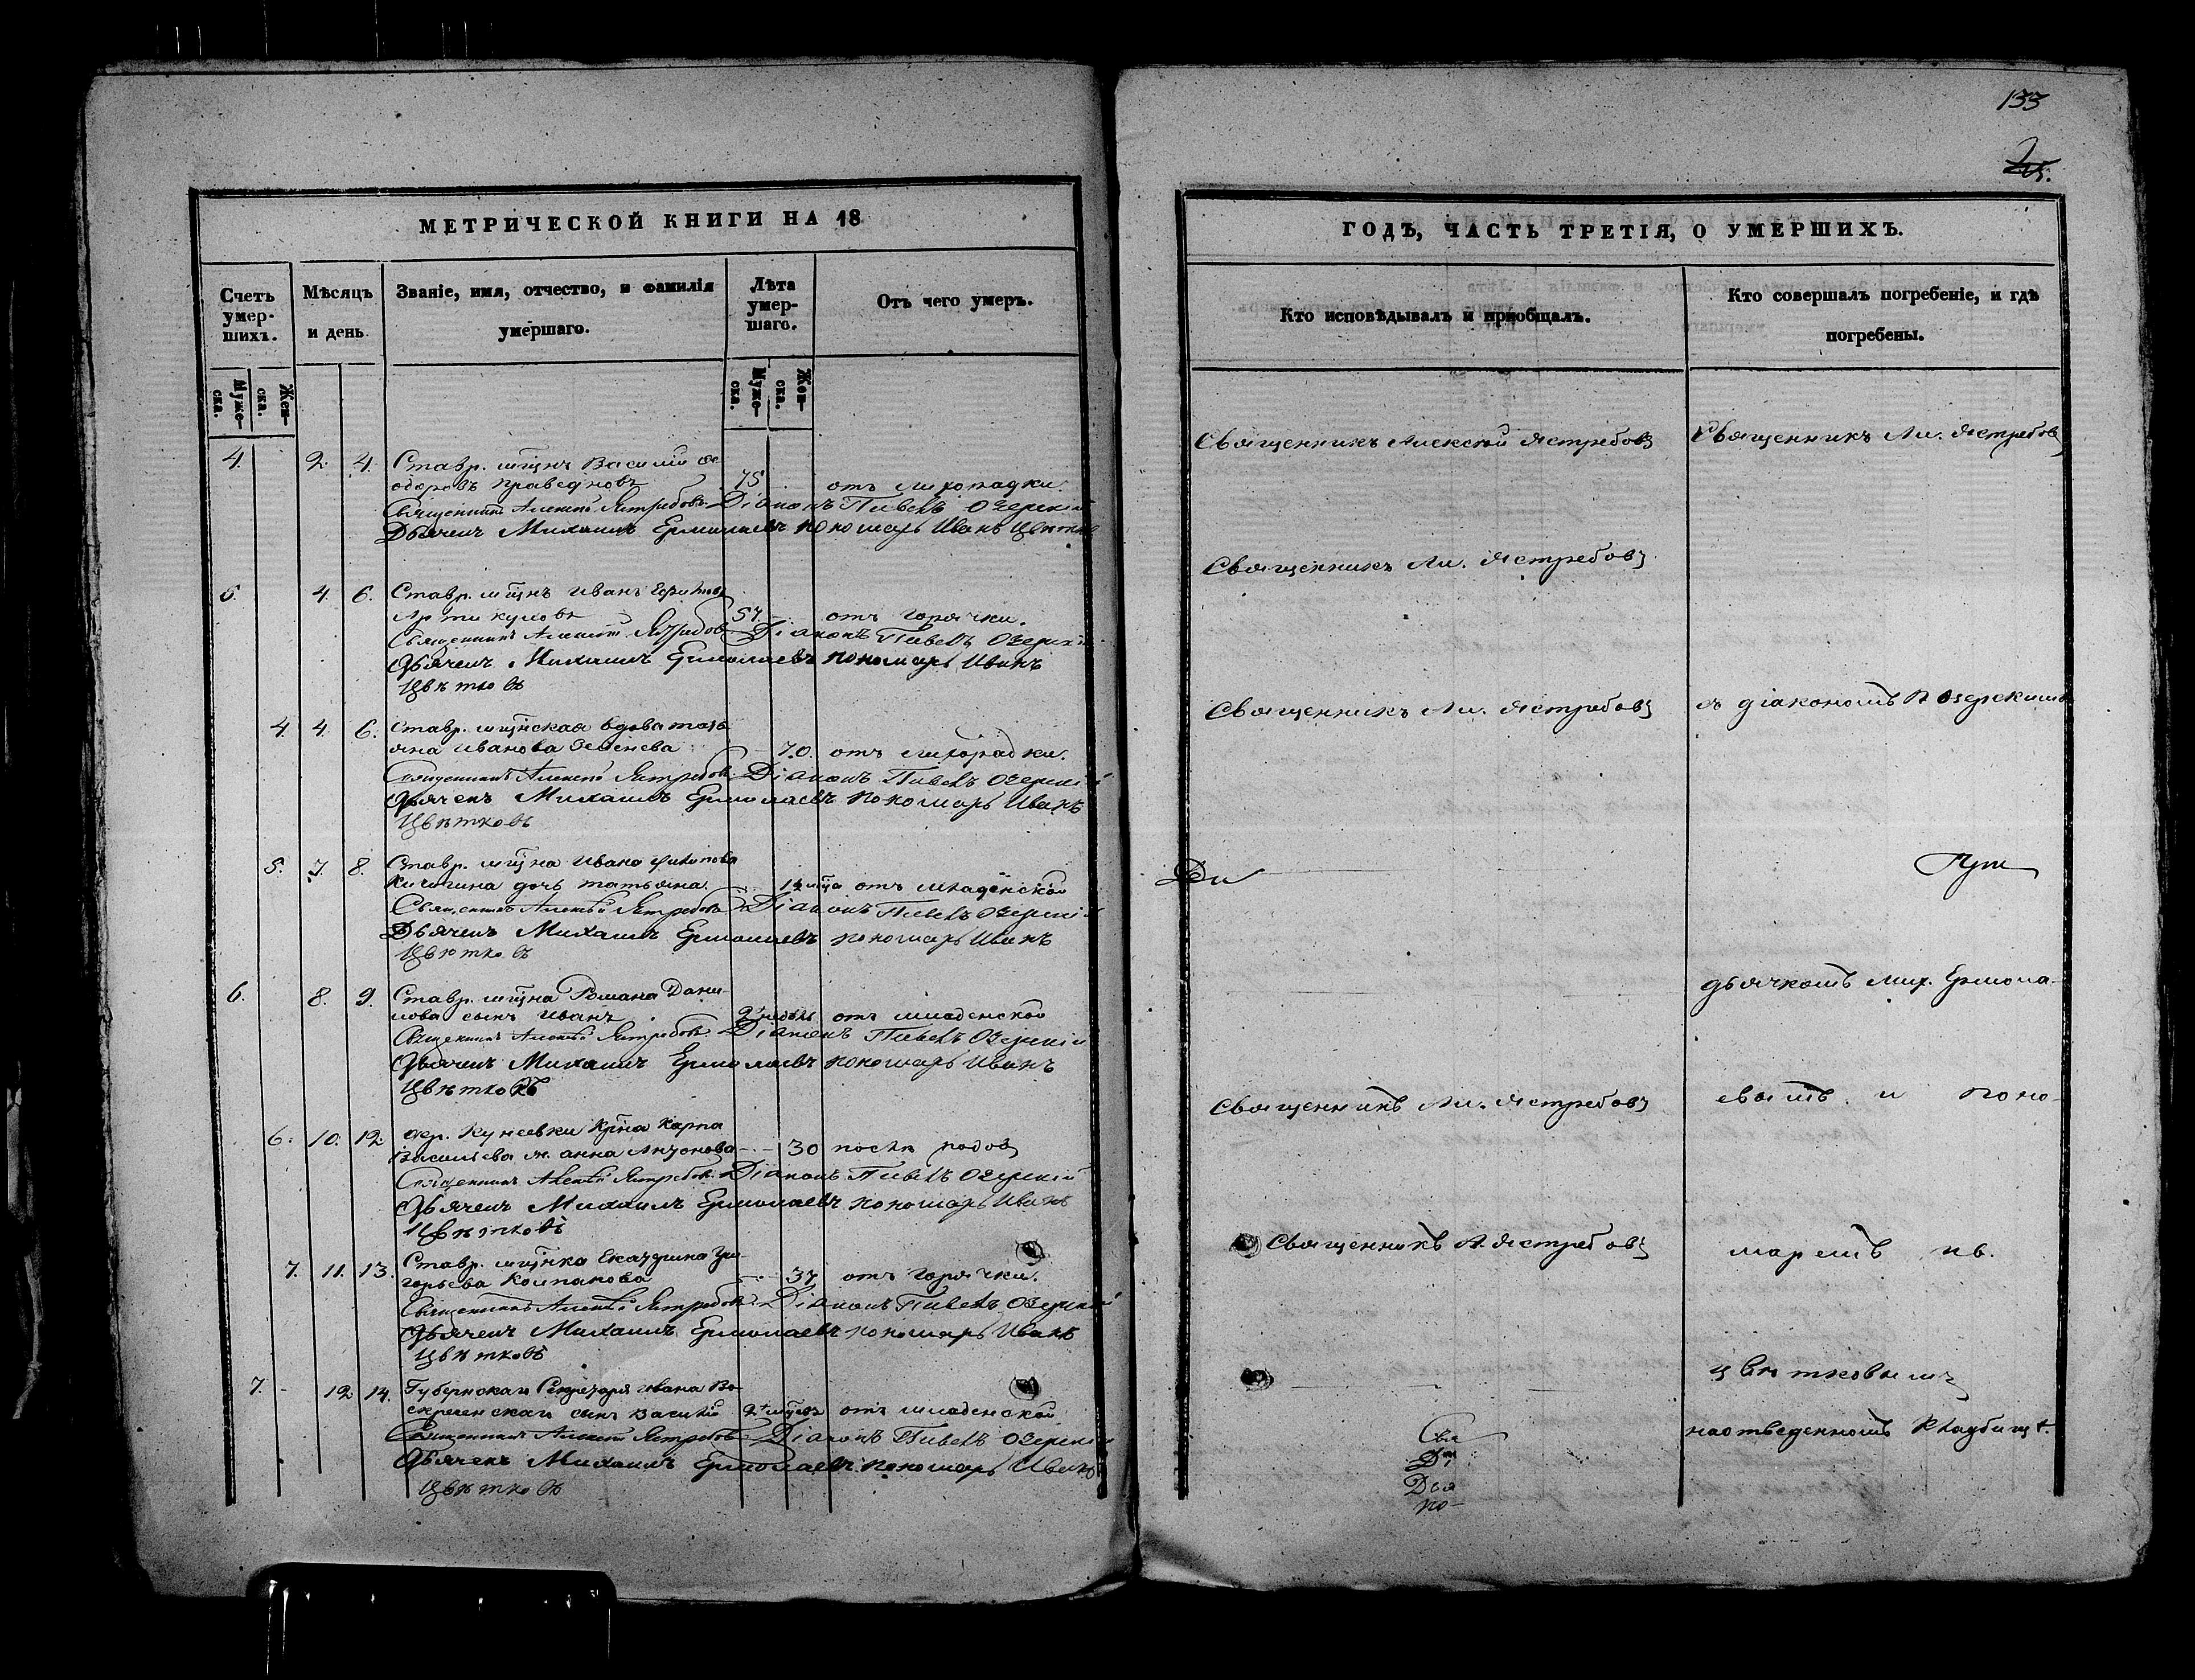 МЕТРИЧЕСКОЙ КНИГИ НА 18
Счетъ умер-шихъ.
Мѣсяцъ и день
Званіе, имя, отчество, и фамилія умершаго.
Лѣта умер-шаго.
Отъ чего умеръ.
Муже-ска.
Жен-ска.
Муже-ска.
Жен-ска.
4. 2. 4. Ставр. мщнъ Василій Ѳе
одоровъ Праведновъ 75 отъ лихорадки.
Священникъ Алексѣй Ястребовъ Діаконъ Павелъ Озерскій
Дьячекъ Михаилъ Ермолаевъ пономарь Иванъ Цвѣтковъ
5. 4. 6. Ставр. мщнъ Иванъ
Артикуловъ 57 отъ горячки.
Священникъ Алексѣй Ястребовъ Діаконъ Павелъ Озерскій
Дьячекъ Михаилъ Ермолаевъ пономарь Иванъ
Цвѣтковъ
4. 4. 6. Ставр. мщнская вдова Тать
яна Иванова 70. отъ лихорадки.
Священникъ Алексѣй Ястребовъ Діаконъ Павелъ Озерскій
Дьячекъ Михаилъ Ермолаевъ пономарь Иванъ
Цвѣтковъ
5. 7. 8. Ставр. мщна Ивана Филипова
Кичигина дочь Татьяна. отъ младенской
Священникъ Алексѣй Ястребовъ Діаконъ Павелъ Озерскій
Дьячекъ Михаилъ Ермолаевъ пономарь Иванъ
Цвѣтковъ
6. 8. 9. Ставр. мщна Романа Дани-
лова сынъ Иванъ 2 недѣль отъ младенской
Священникъ Алексѣй Ястребовъ Діаконъ Павелъ Озерскій
Дьячекъ Михаилъ Ермолаевъ пономарь Иванъ
Цвѣтковъ
6. 10. 12. Кунеевки Крна Карпа
Васильева ж. Анна Антонова 30 послѣ родовъ
Священникъ Алексѣй Ястребовъ Діаконъ Павелъ Озерскій
Дьячекъ Михаилъ Ермолаевъ пономарь Иванъ
Цвѣтковъ
7. 11. 13. Ставр. мщнка Екатерина Гри-
горьева Колпакова 37 отъ горячки.
Священникъ Алексѣй Ястребовъ Діаконъ Павелъ Озерскій
Дьячекъ Михаилъ Ермолаевъ пономарь Иванъ
Цвѣтковъ
7. 12 14. Губернскаго Секретаря Ивана Во-
скресенскаго сынъ Василій отъ младенской
Священникъ Алексѣй Ястребовъ Діаконъ Павелъ Озерскій
Дьячекъ Михаилъ Ермолаевъ пономарь Иванъ
Цвѣтковъ
133
ГОДЪ, ЧАСТЬ ТРЕТІЯ, О УМЕРШИХЪ.
Кто исповѣдывалъ и пріобщалъ.
Кто совершалъ погребеніе, и гдѣ погребены.
Священникъ Алексѣй Ястребовъ
Священникъ Ал. Ястребовъ
Священникъ Ал. Ястребовъ
Священникъ Ал. Ястребовъ
съ діакономъ П Озерскимъ
дьячкомъ Мих. Ермола-
Священникъ Ал. Ястребовъ
евымъ и поно-
Священникъ А. Ястребовъ
маремъ Ив.
Цвѣтковымъ
на отведенномъ кладбищѣ.
Свя
Ді
Дья
по-